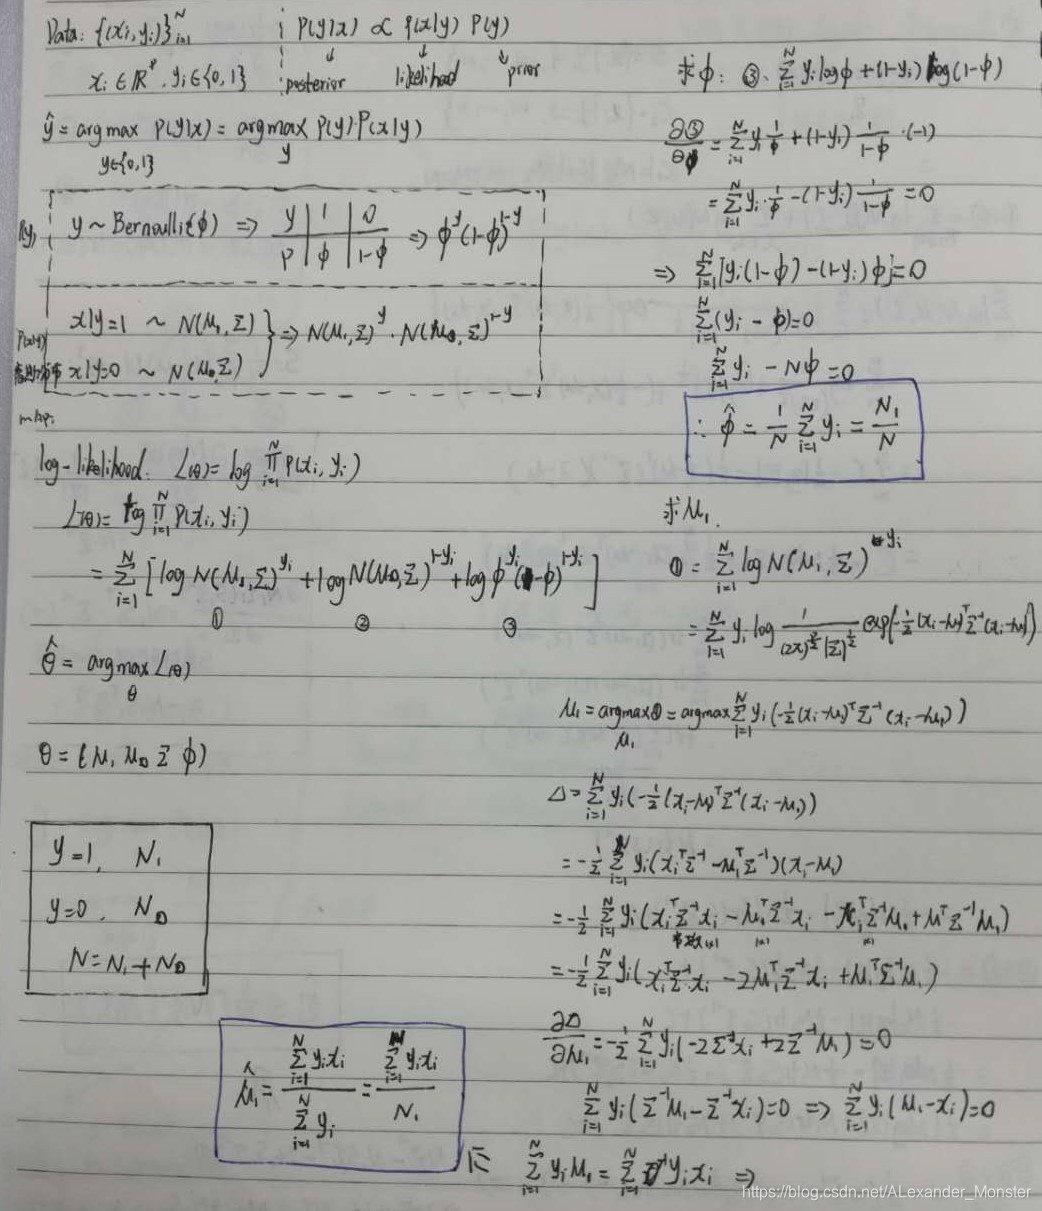 Data: {(xᵢ, yᵢ)}ᵢ₌₁ᴺ
xᵢ ∈ ℝᵖ, yᵢ ∈ {0, 1}
P(y|x) ∝ P(x|y) P(y)
↓ posterior ↓ likelihood ↓ prior
ŷ = argmax P(y|x) = argmax P(y) P(x|y)
y∈{0,1} y
P(y) y ~ Bernoulli(φ) ⇒ y | 1 | 0
p | φ | 1-φ ⇒ φ^y (1-φ)^(1-y)
P(x|y) x|y=1 ~ N(μ₁, Σ)
x|y=0 ~ N(μ₀, Σ) } ⇒ N(μ₁, Σ)^y · N(μ₀, Σ)^(1-y)
MAP:
log-likelihood. L(θ) = log ∏ᵢ₌₁ᴺ P(xᵢ, yᵢ)
L(θ) = log ∏ᵢ₌₁ᴺ P(xᵢ, yᵢ)
= Σᵢ₌₁ᴺ [log N(μ₁, Σ)^yᵢ + log N(μ₀, Σ)^(1-yᵢ) + log φ^yᵢ (1-φ)^(1-yᵢ)]
① ② ③
θ̂ = argmax L(θ)
θ
θ = (μ₁ μ₀ Σ φ)
y=1, N₁
y=0, N₀
N = N₁ + N₀
求 φ: ③. Σᵢ₌₁ᴺ yᵢ log φ + (1-yᵢ) log (1-φ)
∂③/∂φ = Σᵢ₌₁ᴺ yᵢ 1/φ + (1-yᵢ) 1/(1-φ) · (-1)
= Σᵢ₌₁ᴺ yᵢ · 1/φ - (1-yᵢ) 1/(1-φ) = 0
⇒ Σᵢ₌₁ᴺ [yᵢ(1-φ) - (1-yᵢ) φ] = 0
Σᵢ₌₁ᴺ (yᵢ - φ) = 0
Σᵢ₌₁ᴺ yᵢ - Nφ = 0
∴ φ̂ = 1/N Σᵢ₌₁ᴺ yᵢ = N₁/N
求 μ₁.
① = Σᵢ₌₁ᴺ log N(μ₁, Σ)^yᵢ
= Σᵢ₌₁ᴺ yᵢ log 1/((2π)^(p/2) |Σ|^(1/2)) exp{-1/2 (xᵢ-μ₁)ᵀ Σ⁻¹ (xᵢ-μ₁)}
μ₁ = argmax ① = argmax Σᵢ₌₁ᴺ yᵢ (-1/2 (xᵢ-μ₁)ᵀ Σ⁻¹ (xᵢ-μ₁))
μ₁
Δ = Σᵢ₌₁ᴺ yᵢ (-1/2 (xᵢ-μ₁)ᵀ Σ⁻¹ (xᵢ-μ₁))
= -1/2 Σᵢ₌₁ᴺ yᵢ (xᵢᵀ Σ⁻¹ - μ₁ᵀ Σ⁻¹)(xᵢ-μ₁)
= -1/2 Σᵢ₌₁ᴺ yᵢ (xᵢᵀ Σ⁻¹ xᵢ - μ₁ᵀ Σ⁻¹ xᵢ - xᵢᵀ Σ⁻¹ μ₁ + μ₁ᵀ Σ⁻¹ μ₁)
= -1/2 Σᵢ₌₁ᴺ yᵢ (xᵢᵀ Σ⁻¹ xᵢ - 2μ₁ᵀ Σ⁻¹ xᵢ + μ₁ᵀ Σ⁻¹ μ₁)
∂Δ/∂μ₁ = -1/2 Σᵢ₌₁ᴺ yᵢ (-2Σ⁻¹ xᵢ + 2Σ⁻¹ μ₁) = 0
Σᵢ₌₁ᴺ yᵢ (Σ⁻¹ μ₁ - Σ⁻¹ xᵢ) = 0 ⇒ Σᵢ₌₁ᴺ yᵢ (μ₁ - xᵢ) = 0
Σᵢ₌₁ᴺ yᵢ μ₁ = Σᵢ₌₁ᴺ yᵢ xᵢ ⇒
μ̂₁ = Σᵢ₌₁ᴺ yᵢxᵢ / Σᵢ₌₁ᴺ yᵢ = Σᵢ₌₁ᴺ yᵢxᵢ / N₁
https://blog.csdn.net/ALexander_Monster